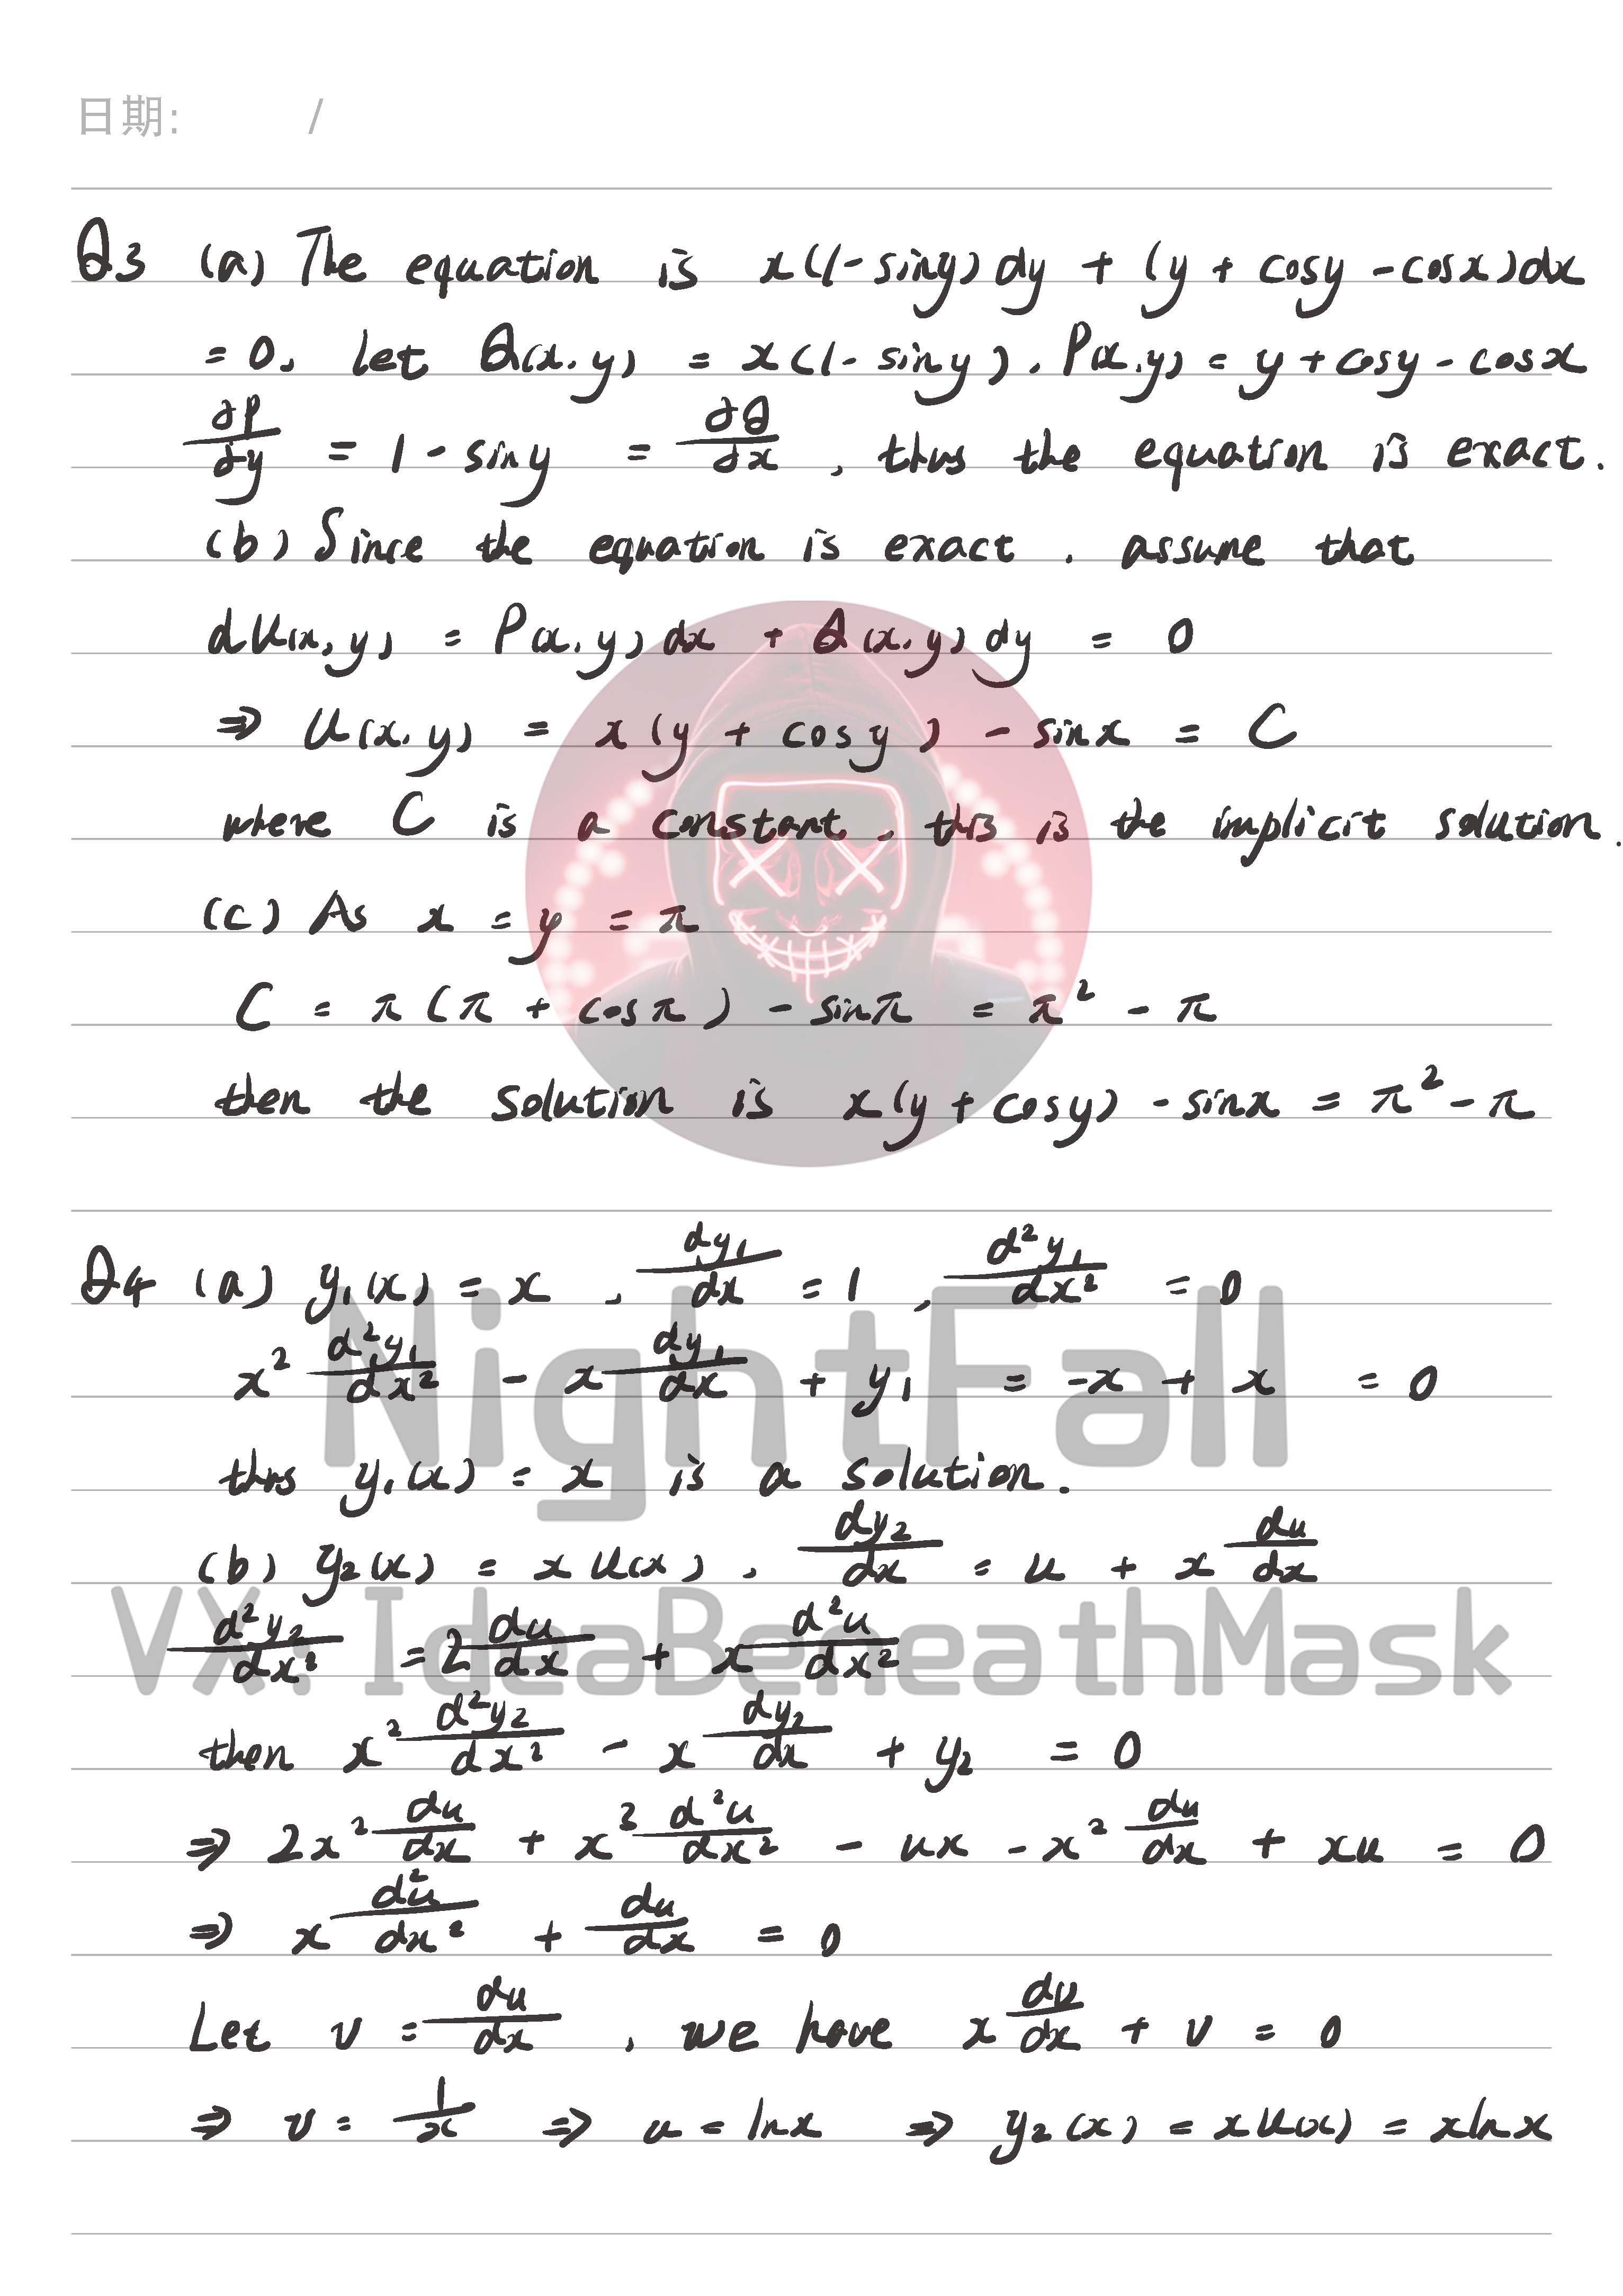 日期: /
Q3 (a) The equation is x(1-siny)dy + (y + cosy - cosx)dx
= 0, let Q(x,y) = x(1-siny), P(x,y) = y + cosy - cosx
∂P/∂y = 1 - siny = ∂Q/∂x, thus the equation is exact.
(b) Since the equation is exact, assume that
du(x,y) = P(x,y)dx + Q(x,y)dy = 0
⇒ u(x,y) = x(y + cosy) - sinx = C
where C is a constant, this is the implicit solution.
(c) As x = y = π
C = π(π + cosπ) - sinπ = π² - π
then the solution is x(y + cosy) - sinx = π² - π
Q4 (a) y₁(x) = x, dy₁/dx = 1, d²y₁/dx² = 0
x² d²y₁/dx² - x dy₁/dx + y₁ = -x + x = 0
thus y₁(x) = x is a solution.
(b) y₂(x) = xu(x), dy₂/dx = u + x du/dx
d²y₂/dx² = 2 du/dx + x d²u/dx²
then x² d²y₂/dx² - x dy₂/dx + y₂ = 0
⇒ 2x² du/dx + x³ d²u/dx² - ux - x² du/dx + xu = 0
⇒ x d²u/dx² + du/dx = 0
Let v = du/dx, we have x dv/dx + v = 0
⇒ v = 1/x ⇒ u = lnx ⇒ y₂(x) = xu(x) = xlnx
NightFall
VX: IdeaBeneathMask